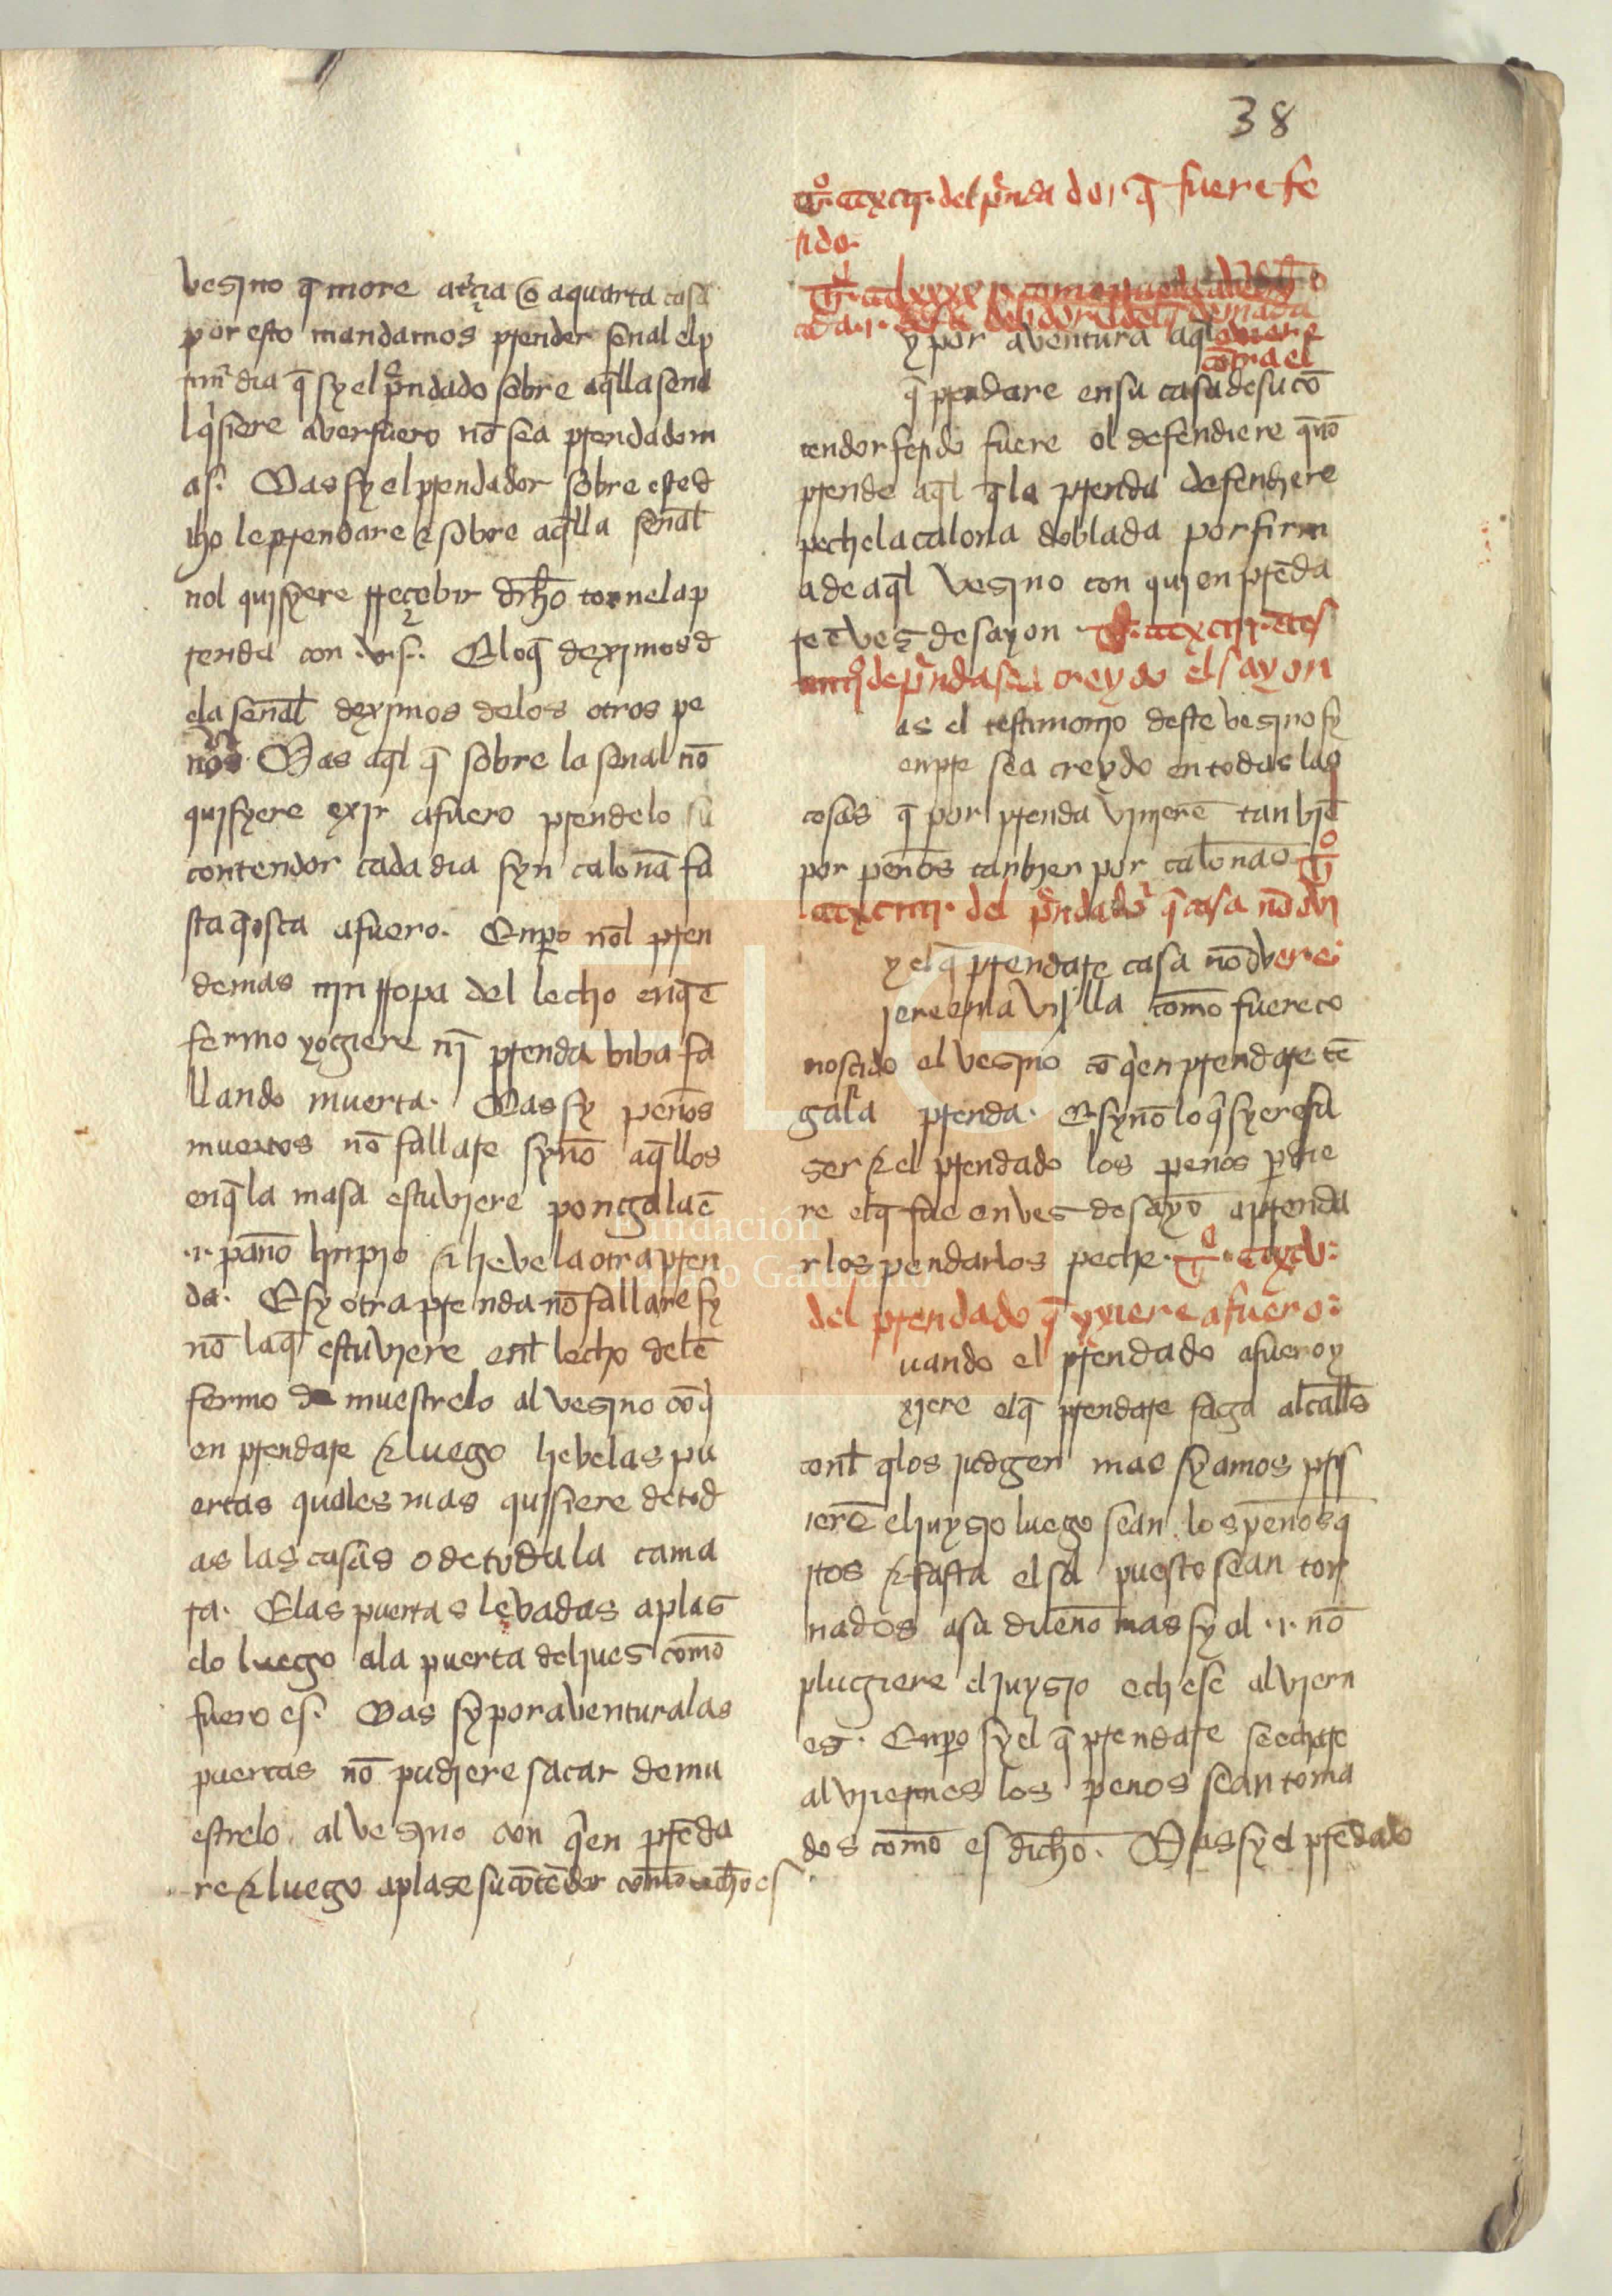 38
vesino q̄ more a terçia o a quarta casa
por esto mandamos prender señal el p
rimͦ dia q̄ sy el prendado sobre aq̄lla seña
l q̇siere aver fuero nō sea prendado m
as. Mas sy el prendador sobre este d
cho le prendare & sobre aq̄lla señal
nol quisyere rreçebir dicho torne la p
renda con .v. s. E lo q̄ deximos d
ela señal deximos de los otros pe
ños. Mas aq̄l q̄ sobre la señal nō
quisyere exir a fuero prendelo su
contendor cada dia syn caloña fa
sta q̄ isca a fuero. Enpero nol pren
de mas nin rropa del lecho en q̄ ē
fermo yogiere nī prenda biba fa
llando muerta. Mas sy peños
muertos nō fallare synō aq̄llos
en q̄ la masa estuviere pongala ē
.i. paño linpio & lieve la otra pren
da. E sy otra prenda nō fallare sy
nō la q̄ estuviere enl lecho del ē
fermo de muestrelo al vesino cō q̇
en prendare & luego lieve las pu
ertas quales mas quisiere de tod
as las casas o de toda la cama
ra. E las puertas levadas aplas
elo luego a la puerta del jues como
fuero es. Mas sy por aventura las
puertas nō pudiere sacar demu
estrelo al vesino con q̇en prēda
re & luego aplase su cōtēdor como dicho es
Tͦ. ccxcii. del prendador q̄ fuere fe
rido.
y por aventura aq̄l
q̄ prendare en su casa de su cō
tendor ferido fuere ol defendiere q̄ nō
prende aq̄l q̄ la prenda defendiere
peche la caloña doblada por firm
a de aq̄l vesino con quien prēda
re ē ves de sayon
de prenda sea creydo el sayon
as el testimonio deste vesino sy
enpre sea creydo en todas las
cosas q̄ por prenda vinierē tan biē
por peños tanbien por caloñas Tͦ
.ccxciiii. del prendador q̄ casa nō ovi
y el q̄ prendare casa nō oviere:
iere en la villa como fuere co
noscido el vesino cō q̇en prendare tē
gala prenda. E sy nō lo q̇syere fa
ser & el prendado los peños perdie
re el q̄ fue en ves de sayō a prenda
r los pendarlos peche. Tͦ. ccxcv:
del prendado q̄ yxiere a fuero:
uando el prendado a fuero y
xiere el q̄ prendare faga alcalłs
conl q̄ los judgen mas sy amos pris
ierē el juysio luego sean los peños q̇
itos & fasta el sa puesto sean tor
nados a su dueño mas sy al .i. nō
plugiere el juysio echese al viern
es. Enpero sy el q̄ prendare se echare
al viernes los peños sean toma
dos como es dicho. Mas sy el prēdado